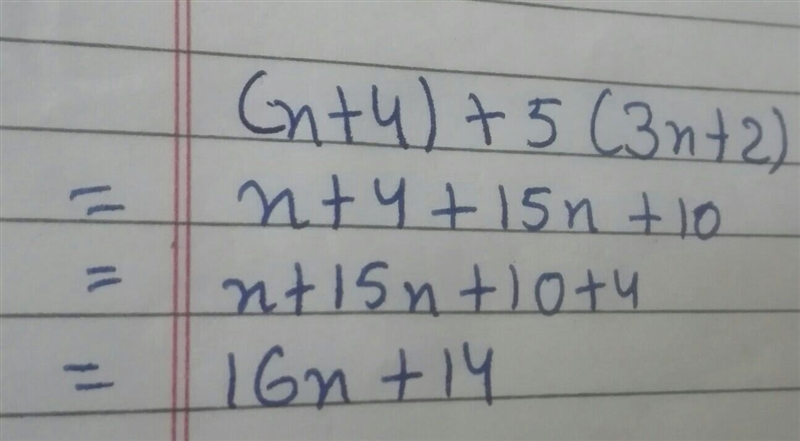 (x+4) + 5 (3x+2)
= x+4+15x+10
= x+15x+10+4
= 16x+14